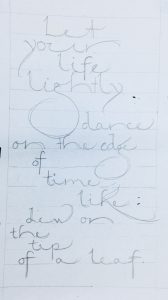 Let
your
life
lightly
dance
on the edge
of
time
like
dew on
the
tip
of a leaf.